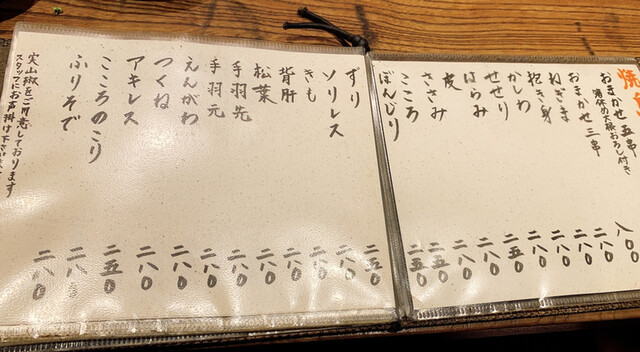 焼
おまかせ五串
おまかせ三串
ねぎま
抱き身
かしわ
せせり
はらみ
皮
ささみ
こころ
ぼんじり
八〇〇
二八〇
二八〇
二八〇
二五〇
二八〇
二八〇
二五〇
二五〇
ずり 二五〇
ソリレス 二八〇
きも 二八〇
背肝 二八〇
松葉 二八〇
手羽先 二八〇
手羽元 二八〇
えんがわ 二八〇
つくね 二八〇
アキレス 二五〇
こころのこり 二八〇
ふりそで 二八〇
実山椒をご用意しております
スタッフにお声掛け下さいませ